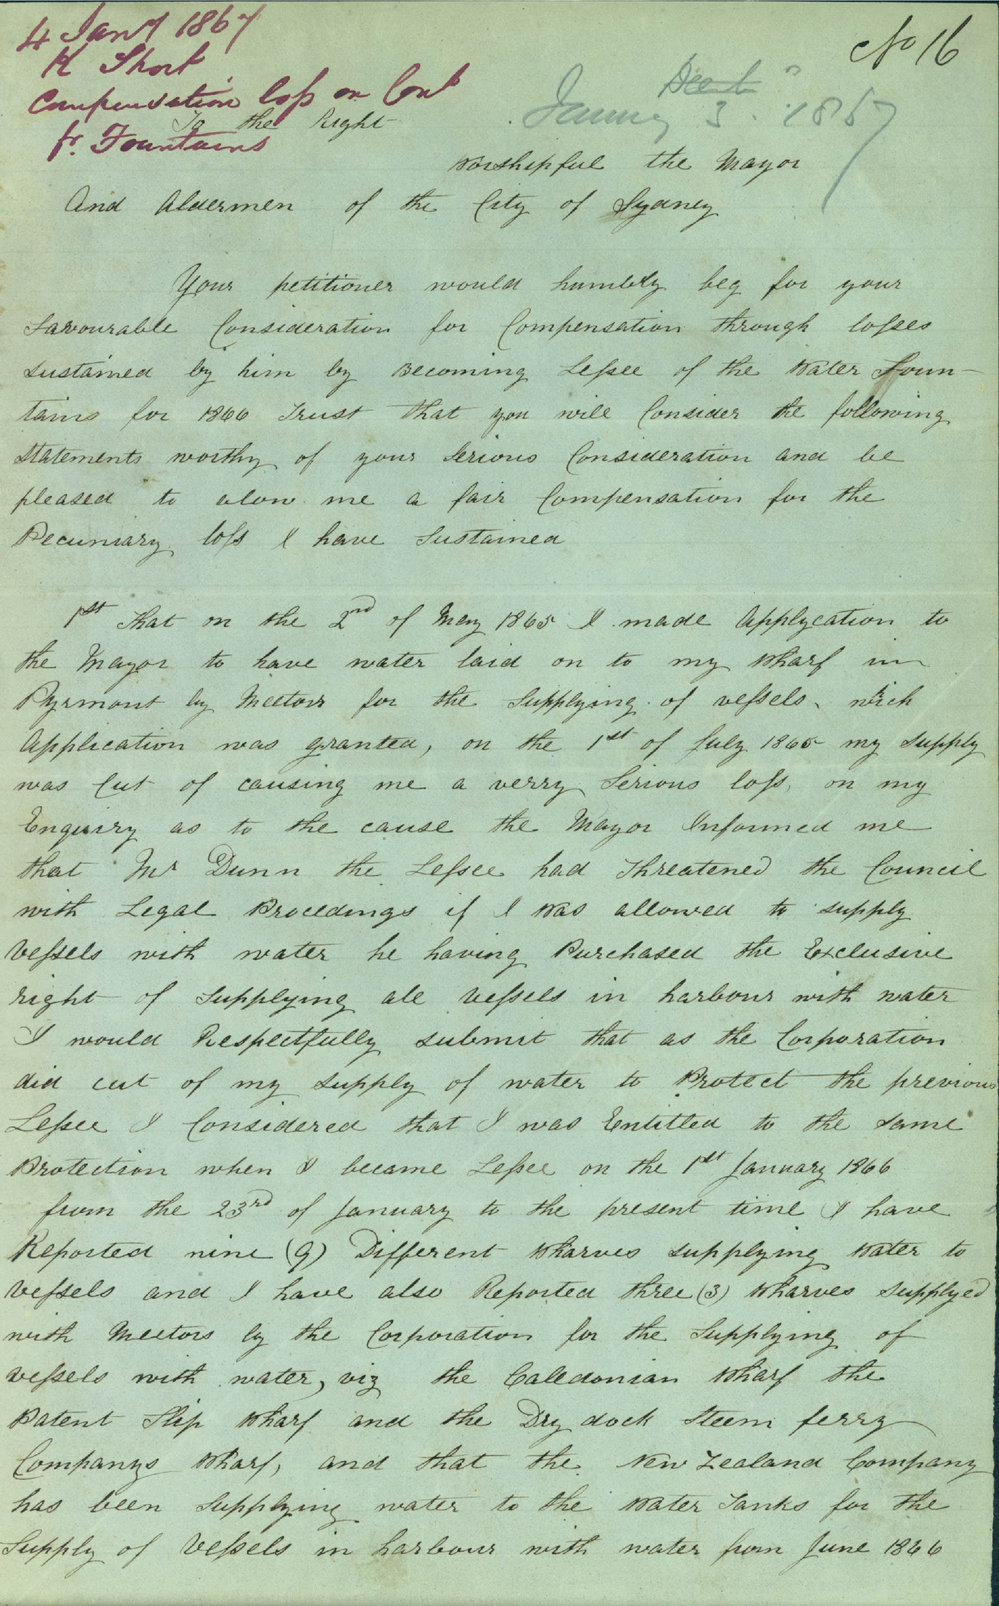 4 Jany 1867
No 16
R Short
Compensation loss on Cont
fr. Fountains
January 3. 1867
To the Right
Worshipful the Mayor
And Aldermen of the City of Sydney
Your petitioner would humbly beg for your
favourable Consideration for Compensation through losses
sustained by him by Becoming Lessee of the Water Foun-
tains for 1866 Trust that you will Consider the following
statements worthy of your serious Consideration and be
pleased to alow me a fair Compensation for the
Pecuniary loss I have sustained
1st That on the 2nd of May 1865 I made Applycation to
the Mayor to have water laid on to my Wharf in
Pyrmont by Meetors for the Supplying of vessels, wich
Application was granted, on the 1st of July 1865 my supply
was Cut of causing me a verry Serious loss, on my
Enquiry as to the cause the Mayor Informed me
that Mr Dunn the Lessee had Threatened the Council
with Legal Proceedings if I was allowed to supply
Vessels with water he having Purchased the Exclusive
right of supplying all Vessels in harbour with water
I would Respectfully submit that as the Corporation
did cut of my supply of water to Protect the previous
Lessee I Considered that I was Entitled to the same
Protection when I became Lessee on the 1st January 1866
from the 23rd of January to the present time I have
Reported nine (9) Different Wharves supplying Water to
Vessels and I have also Reported three (3) Wharves supplyed
with Meetors by the Corporation for the Supplying of
Vessels with water, viz the Caledonian Wharf the
Patent Slip Wharf and the Dry dock Steem ferry
Companys Wharf, and that the New Zealand Company
has been supplying water to the Water Tanks for the
Supply of Vessels in harbour with water from June 1866